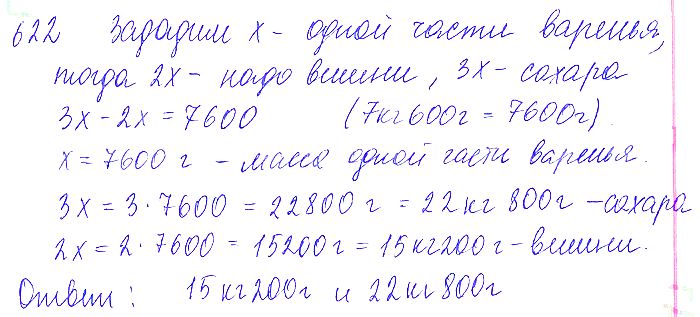 622 Зададим x - одной части варенья,
тогда 2x - надо вишни, 3x - сахара
3x - 2x = 7600 (7кг600г = 7600г).
x = 7600 г - масса одной части варенья.
3x = 3·7600 = 22800 г = 22кг 800г - сахара
2x = 2·7600 = 15200г = 15кг200г - вишни.
Ответ: 15кг200г и 22кг800г